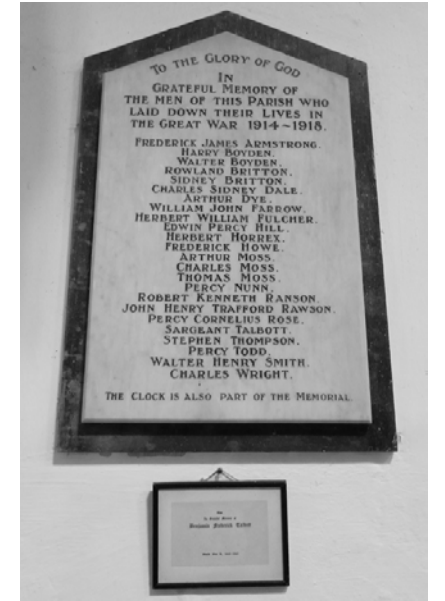 TO THE GLORY OF GOD
IN
GRATEFUL MEMORY OF
THE MEN OF THIS PARISH WHO
LAID DOWN THEIR LIVES IN
THE GREAT WAR 1914~1918.
FREDERICK JAMES ARMSTRONG.
HARRY BOYDEN.
WALTER BOYDEN.
ROWLAND BRITTON.
SIDNEY BRITTON.
CHARLES SIDNEY DALE.
ARTHUR DYE.
WILLIAM JOHN FARROW.
HERBERT WILLIAM FULCHER.
EDWIN PERCY HILL.
HERBERT HORREX.
FREDERICK HOWE.
ARTHUR MOSS.
CHARLES MOSS.
THOMAS MOSS.
PERCY NUNN.
ROBERT KENNETH RANSON.
JOHN HENRY TRAFFORD RAWSON.
PERCY CORNELIUS ROSE.
SARGEANT TALBOTT.
STEPHEN THOMPSON.
PERCY TODD.
WALTER HENRY SMITH.
CHARLES WRIGHT.
THE CLOCK IS ALSO PART OF THE MEMORIAL
Benjamin Frederick